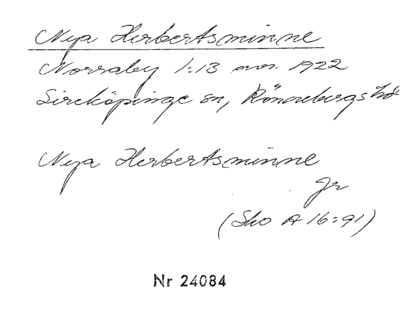 Nya Herbertsminne
Norraby 1:13 avs. 1922
Sireköpinge sn, Rönnebergs hd
Nya Herbertsminne
Gr
(Sko A 16:91)
Nr 24084